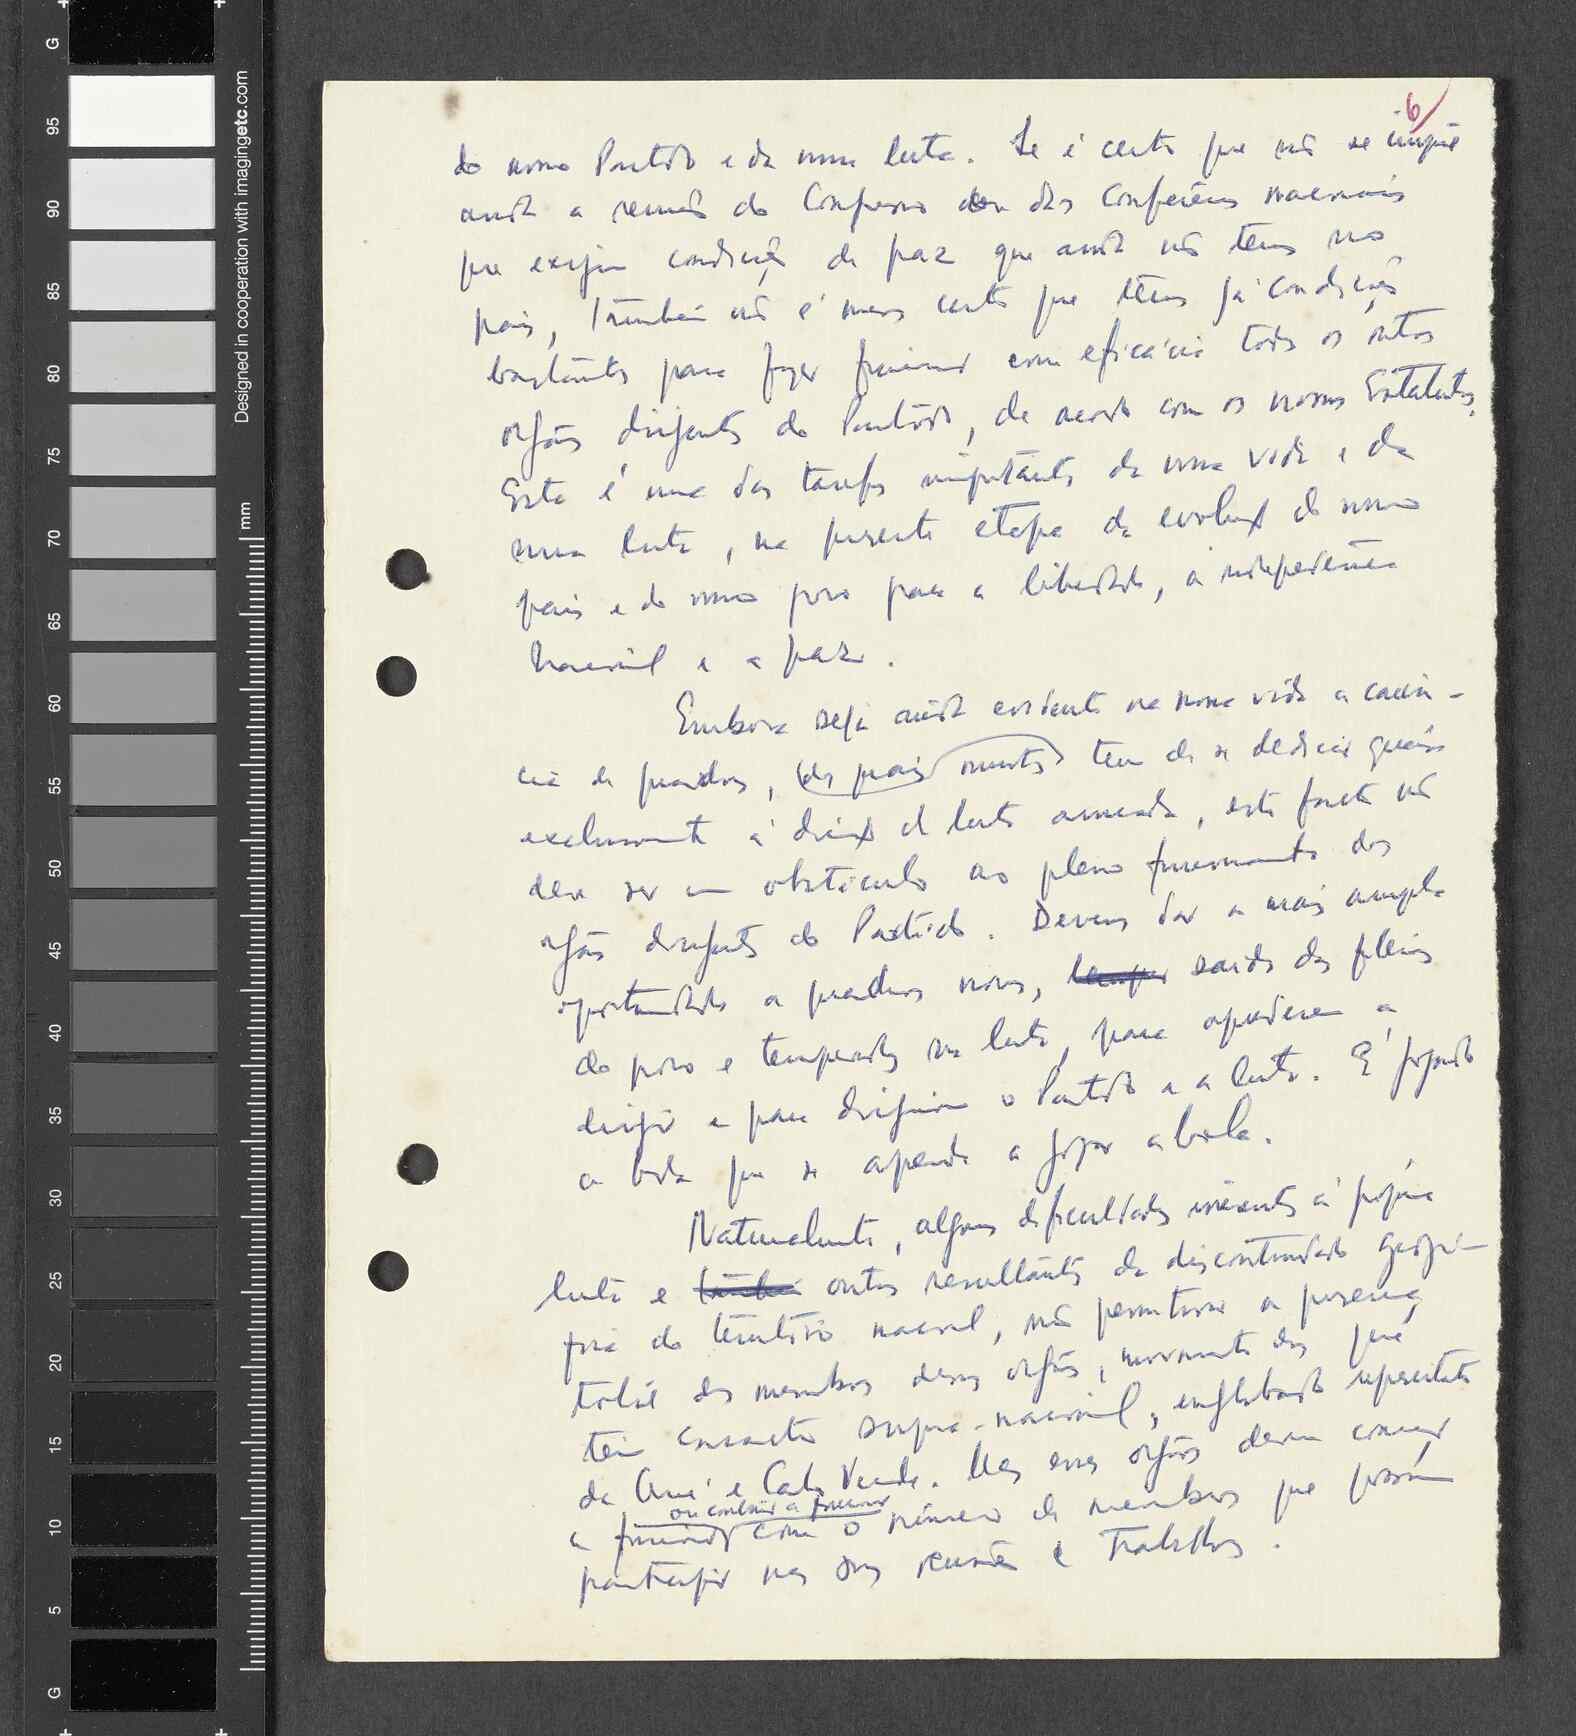 6
do nosso Partido e da nossa luta. Se é certo que não se impõe
ainda a reunião do Congresso das Conferências nacionais
que exigem condições de paz que ainda não temos no
país, também não é menos certo que temos já condições
bastantes para fazer funcionar com eficácia todos os outros
orgãos dirigentes do Partido, de acordo com os nossos Estatutos.
Esta é uma das tarefas importantes da nossa vida e da
nossa luta, na presente etapa da evolução do nosso
país e do nosso povo para a liberdade, a independência
nacional e a paz.
Embora seja ainda evidente na nossa vida a carên-
cia de quadros, dos quais muitos tem de se dedicar quási
exclusivamente à direcção da luta armada, este facto não
deve ser um obstáculo ao pleno funcionamento dos
orgãos dirigentes do Partido. Devemos dar a mais ampla
oportunidade a quadros novos, saidos das fileiras
do povo e temperados na luta, para aprenderem a
dirigir e para dirigirem o Partido e a luta. É jogando
a bola que se aprende a jogar a bola.
Naturalmente, algumas dificuldades inerentes à própria
luta e outras resultantes da descontinuidade geográ-
fica do território nacional, não permitirão a presença
total dos membros desses orgãos, nomeadamente dos que
têm caracter supra-nacional, englobando representantes
da Guiné e Cabo Verde. Mas esses orgãos devem começar
ou continuar a funcionar
a funcionar com o número de membros que possam
participar nas suas reuniões e trabalhos.
Designed in cooperation with imagingetc.com
mm
G
95
90
85
80
75
70
65
60
55
50
45
40
35
30
25
20
15
10
5
G